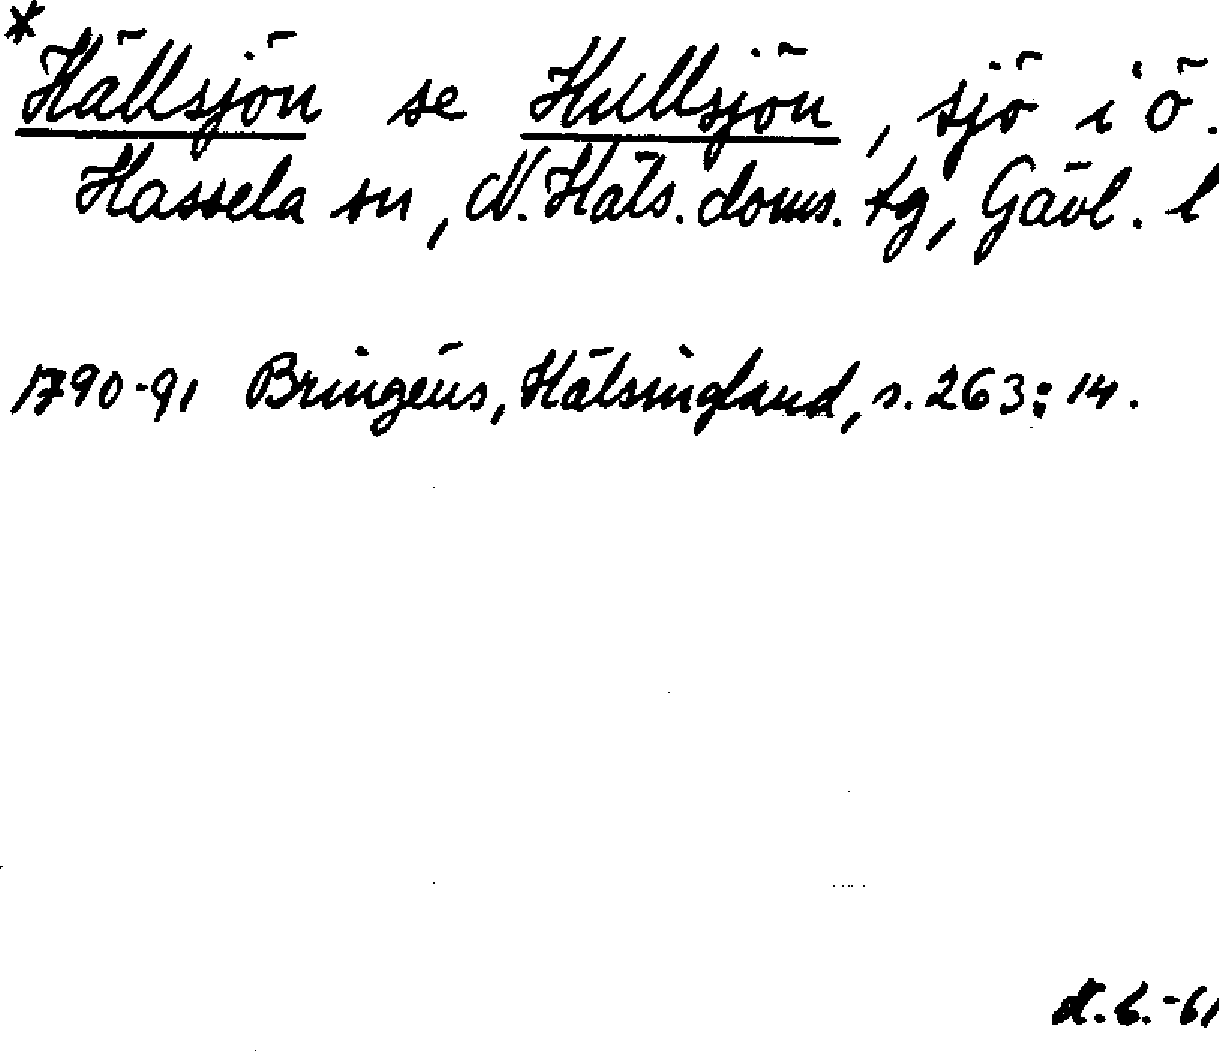 *Hällsjön se Hullsjön, sjö i ö.
Hassela sn, N. Häls. doms. tg, Gävl. l
1790-91 Bringéus, Hälsingland, s. 263:14.
-61